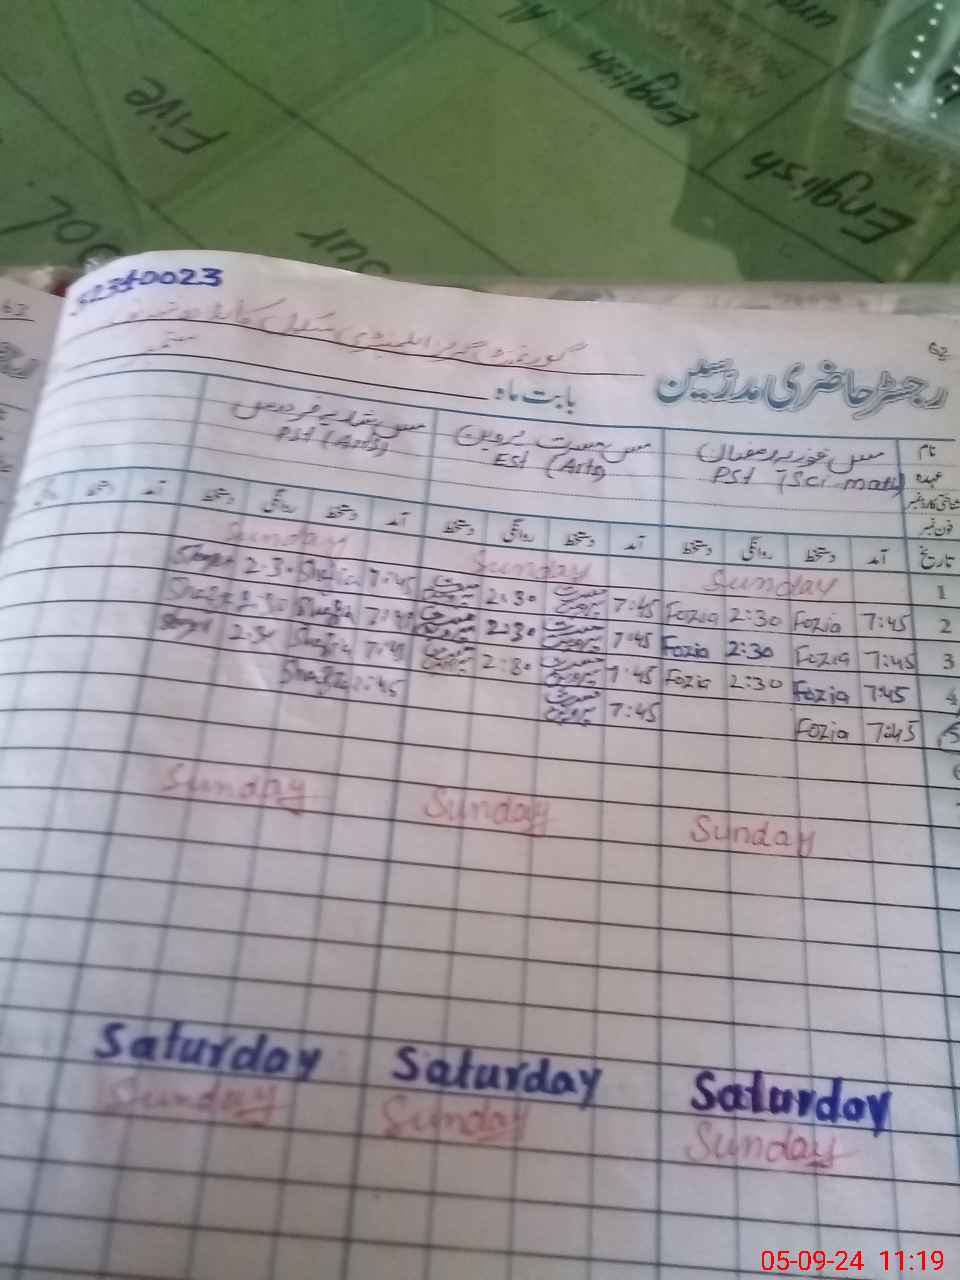 Five
English
English
32340023
62
رجسٹر حاضری مدرسین
بابت ماہ
ستمبر
نام
مس فوزیہ رمضان
مس مسرت پروین
عہدہ
PST (Sci math)
EST (Arts)
PST (Arts)
شناختی کارڈ نمبر
فون نمبر
تاریخ آمد دستخط روانگی دستخط آمد دستخط روانگی دستخط آمد دستخط روانگی دستخط آمد دستخط روانگی
1 Sunday Sunday Sunday
2 7:45 Fozia 2:30 Fozia 7:45 مسرت پروین 2:30 مسرت پروین 7:45 Shazia 2:30
3 7:45 Fozia 2:30 Fozia 7:45 مسرت پروین 2:30 مسرت پروین 7:45 Shazia 2:30
4 7:45 Fozia 2:30 Fozia 7:45 مسرت پروین 2:30 مسرت پروین 7:45 Shazia 2:30
5 7:45 Fozia 7:45 مسرت پروین 7:45 Shazia
6
Sunday Sunday Sunday
Saturday Saturday Saturday
Sunday Sunday Sunday
05-09-24 11:19